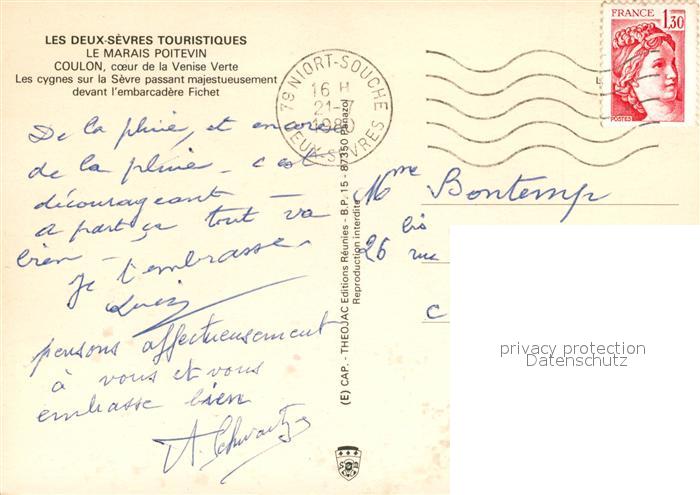 LES DEUX-SÈVRES TOURISTIQUES
LE MARAIS POITEVIN
COULON, cœur de la Venise Verte
Les cygnes sur la Sèvre passant majestueusement
devant l'embarcadère Fichet
De la pluie, et encore
de la pluie - c'est
décourageant -
a part ça tout va
bien - 
Je t'embrasse.
pensons affectueusement
à vous et vous
embrasse bien
(E) CAP. - THEOJAC Editions Réunies - B.P. 15 - 87350 Panazol
Reproduction interdite
79 NIORT-SOUCHE
16 H
21-7
1980
DEUX-SEVRES
FRANCE
1,30
POSTES
Mme Bontemp
26 bis rue
C
privacy protection
Datenschutz